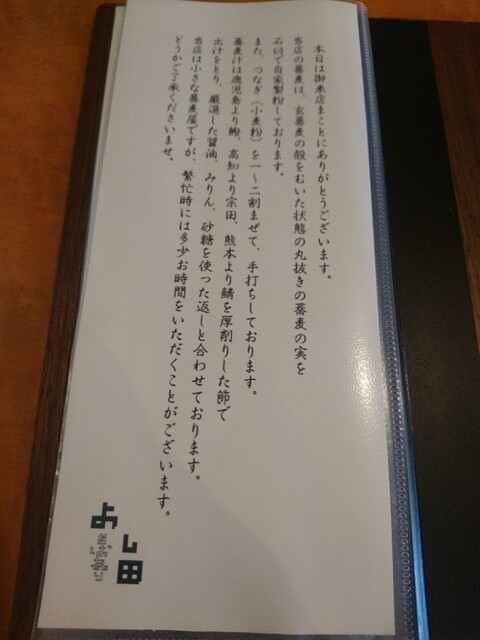 本日は御来店まことにありがとうございます。
当店の蕎麦は、玄蕎麦の殻をむいた状態の丸抜きの蕎麦の実を
石臼で自家製粉しております。
また、つなぎ(小麦粉)を一～二割まぜて、手打ちしております。
蕎麦汁は鹿児島より鰹、高知より宗田、熊本より鯖を厚削りした節で
出汁をとり、厳選した醤油、みりん、砂糖を使った返しと合わせております。
当店は小さな蕎麦屋ですが、繁忙時には多少お時間をいただくことがございます。
どうかご了承くださいませ。
よし田